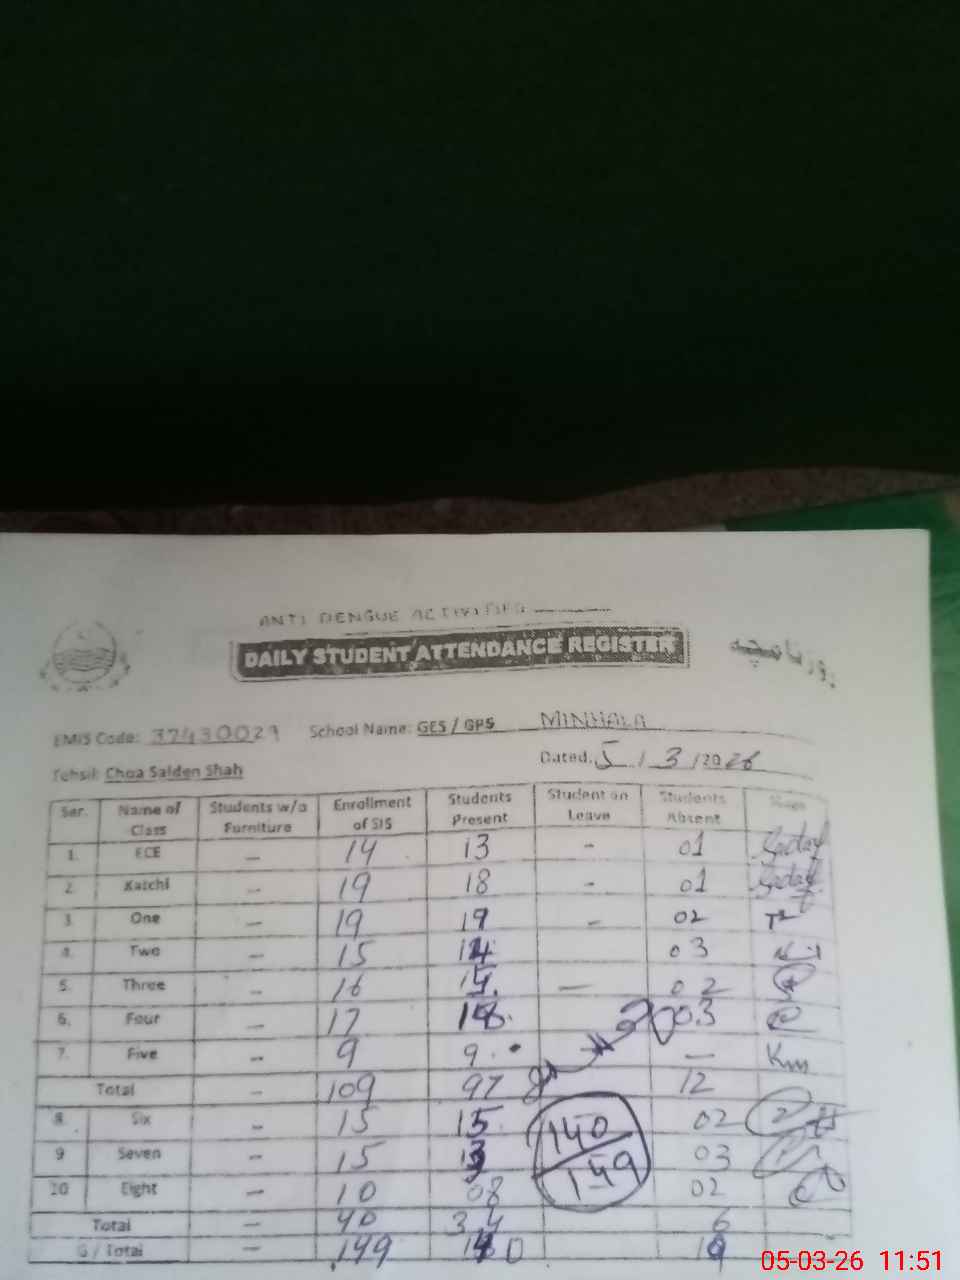 ANTI DENGUE ACTIVITIES
DAILY STUDENT ATTENDANCE REGISTER روزنامچہ
EMIS Code: 37430029 School Name: GES / GPS MINHALA
Tehsil: Choa Saiden Shah Dated: 5 / 3 /2026
Ser. Name of Class Students w/o Furniture Enrollment of SIS Students Present Student on Leave Students Absent
1. ECE – 14 13 - 01 Sadaf
2. Katchi – 19 18 - 01 Sadaf
3. One – 19 - 02
4. Two – 15 03
5. Three – 16 — 02
6. Four – 17 03
7. Five – 9 9 — Km
Total – 109 97 12
8. Six – 15 15 02
9 Seven – 15 03
10 Eight – 10 08 02
Total – 40 34 6
G / Total – 149
140
149
05-03-26 11:51